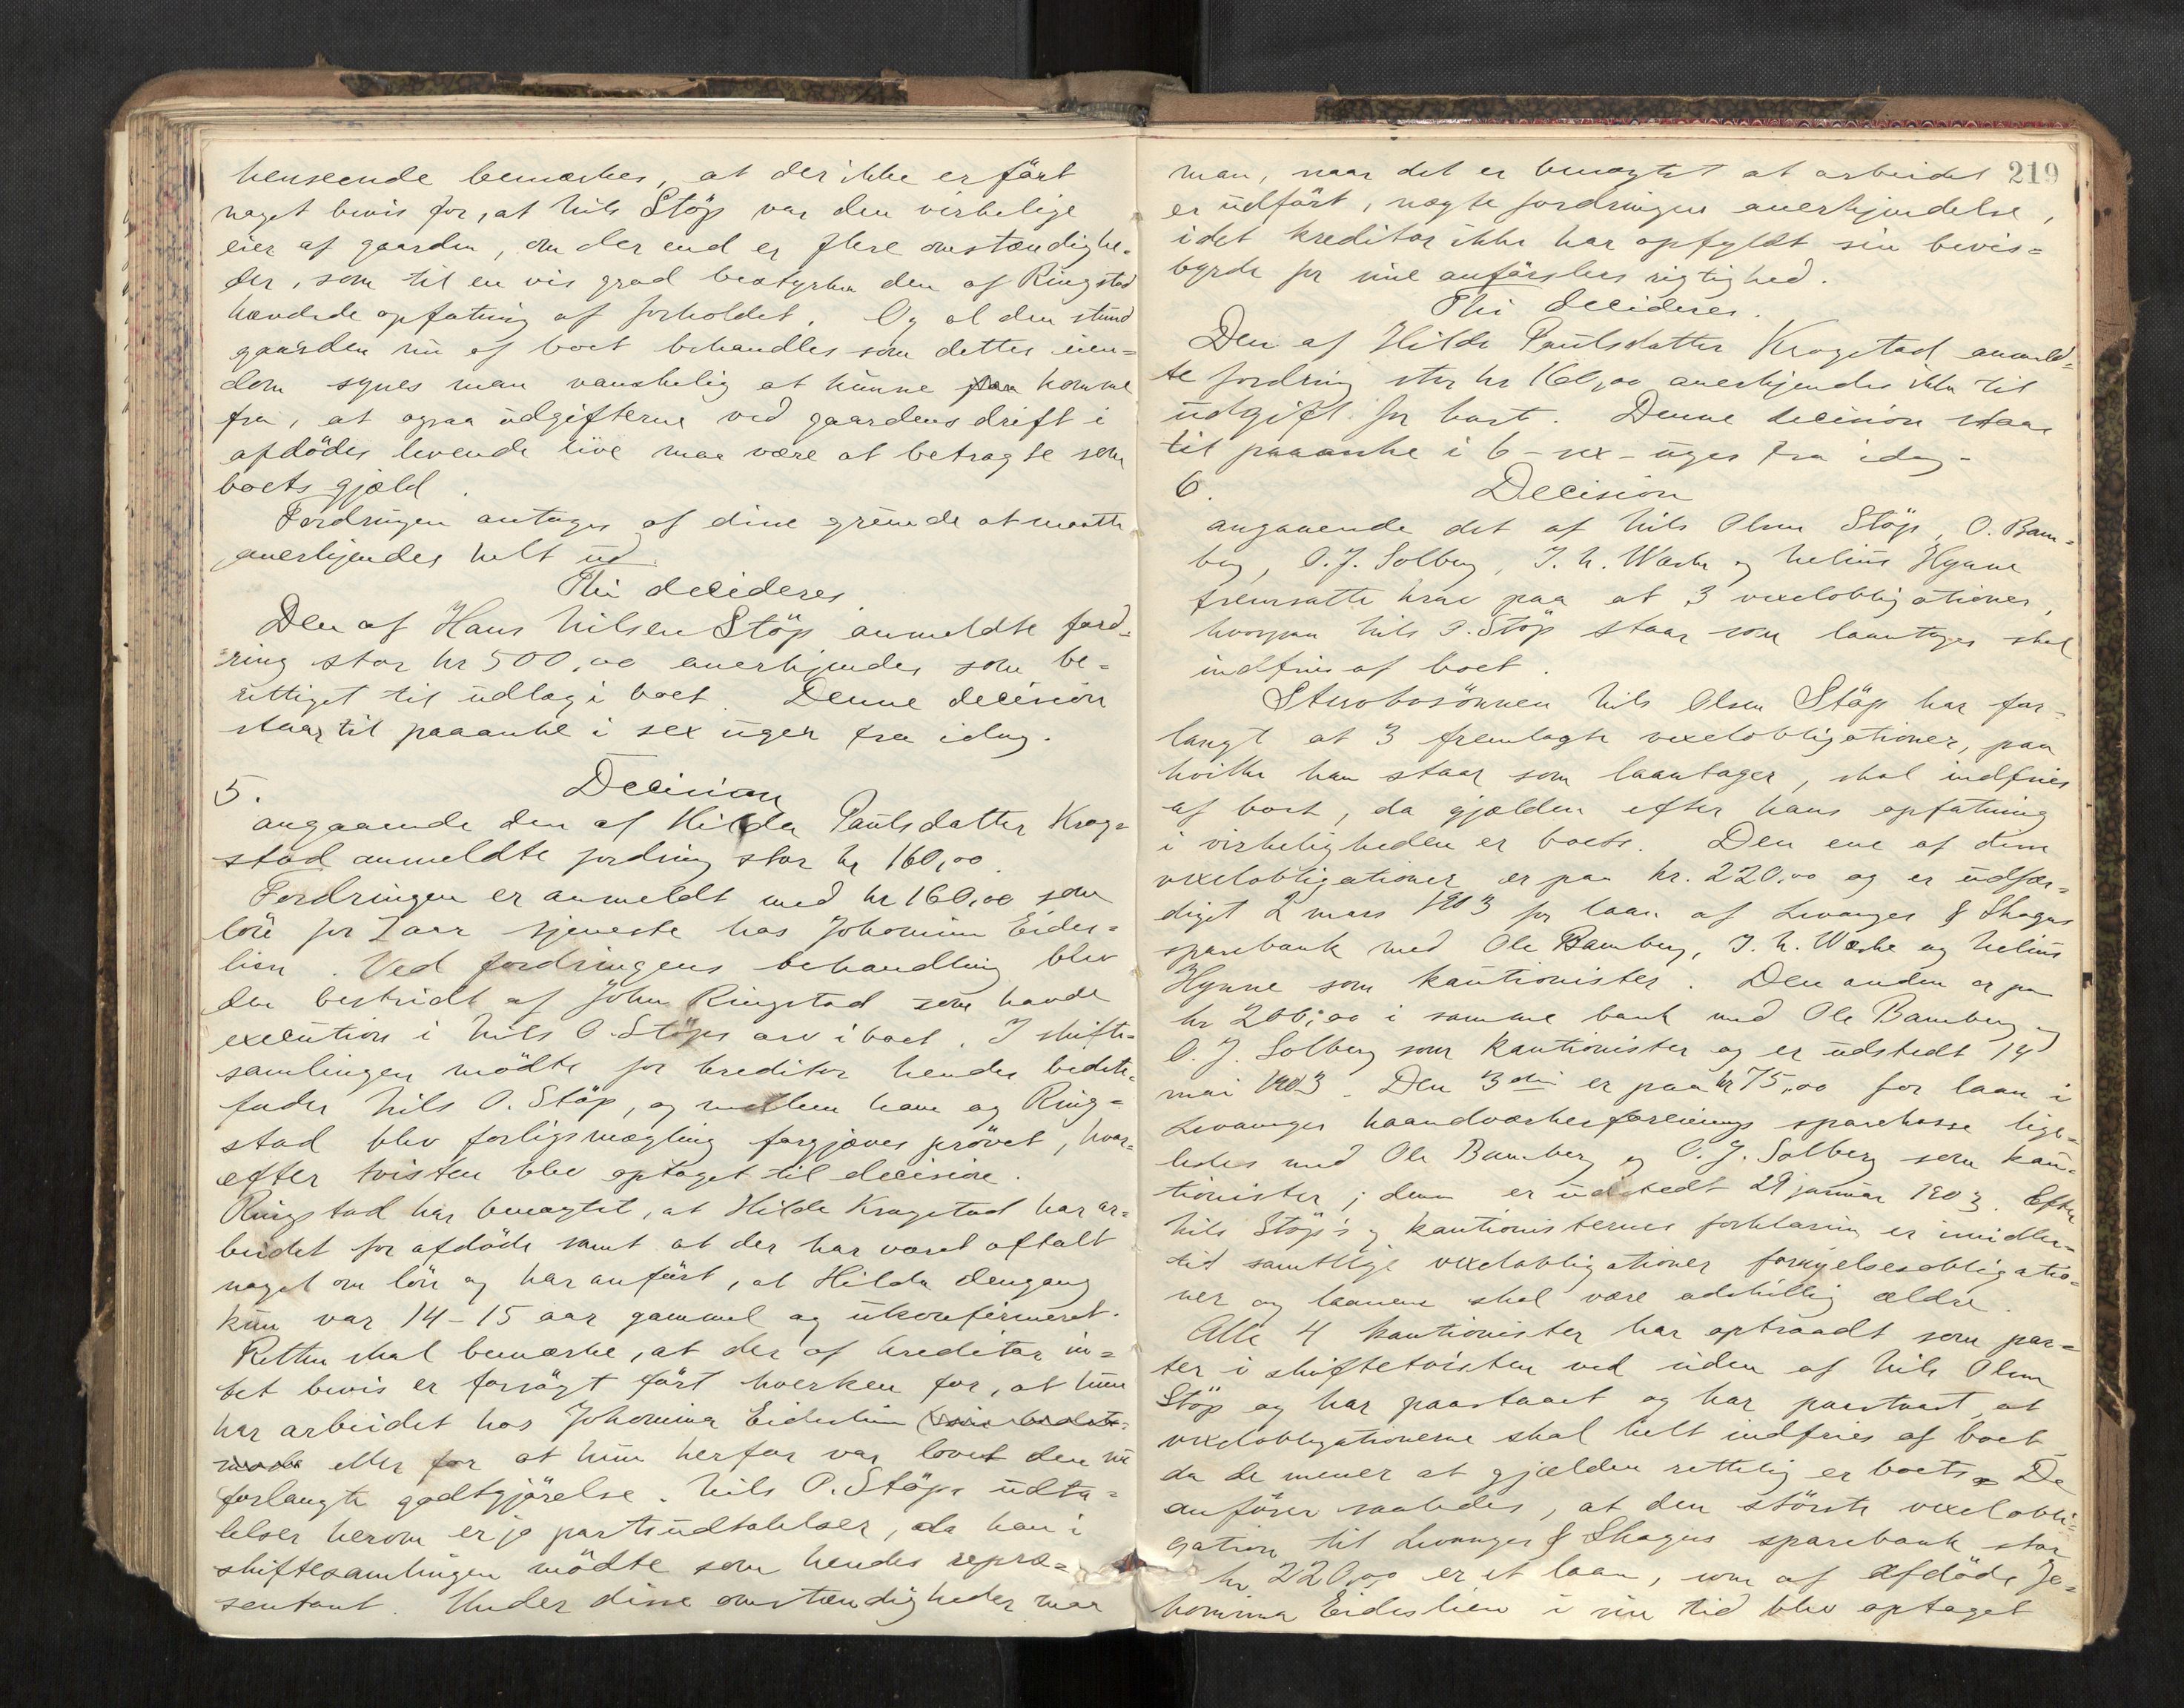 henseende bemærkes, at der ikke er fört
noget bevis for, at Nils Stöp var den virkelige
eier af gaarden, om der end er flere omstændighe-
der, som til en vis grad bestyrker den af Ringstad
hævdede opfatning af forholdet. Og al den stund
gaarden nu af boet behandles som dettes eien-
dom synes man vanskelig at kunne komme
fra, at ogsaa udgifterne ved gaardens drift i
afdödes levende live maa være at betragte som
boets gjæld.
Fordringen antages af disse grunde at maatte
anerkjendes helt ud.
Thi decideres
Den af Hans Nilsen Stöp anmeldte ford-
ring stor kr 500,00 anerkjendes som be-
rettiget til udlæg i boet. Denne decision
staar til paaanke i sex uger fra idag.
5. Decision
angaaende den af Hilda Paulsdatter Krog-
stad anmeldte fordring stor kr 160,00.
Fordringen er anmeldt med kr 160,00 som
lön for 2 aar tjeneste hos Johomina Eides-
lien. Ved fordringens behandling blev
den bestridt af John Ringstad som havde
execution i Nils O. Stöps arv i boet. I skifte-
samlingen mödte for kreditor hendes bedste-
fader Nils O. Stöp, og mellem ham og Ring-
stad blev forligsmægling forgjæves prövet, hvor-
efter tvisten blev optaget til decision.
Ringstad har benegtet, at Hilda Krogstad har ar-
beidet for afdöde samt at der har været aftalt
noget om lön og har anfört, at Hilda dengang
kun var 14-15 aar gammel og ukonfirmeret.
Retten skal bemærke, at der af kreditor in-
tet bevis er forsögt fört hverken for, at hun
har arbeidet hos Johomina Eideslien (sin bedste-
moder eller for at hun herfor var lovet den nu
forlangte godtgjörelse. Nils O. Stöps udta-
lelser herom er jo partsudtalelser, da han i
skiftesamlingen mödte som hendes repræ-
sentant. Under disse omstændigheder maa
219
man, naar det er benegtet at arbeidet
er udfört, negte fordringen anerkjendelse,
idet kreditor ikke har opfyldt sin bevis-
byrde for sine anförslers rigtighed.
Thi decideres.
Den af Hilda Paulsdatter Krogstad anmeld-
te fordring stor kr 160,00 anerkjendes ikke til
udgift for boet. Denne decision staar
til paaanke i 6 - sex - uger fra idag -
6. Decision
angaaende det af Nils Olsen Stöp, O. Bam-
berg, O. J. Solberg, J. N. Wæske og Nelius Hynne
fremsatte krav paa at 3 vexelobligationer,
hvorpaa Nils O. Stöp staar som laantager skal
indfries af boet.
Stervbosönnen Nils Olsen Stöp har for-
langt at 3 fremlagte vexelobligationer, paa
hvilke han staar som laantager, skal indfries
af boet, da gjælden efter hans opfatning
i virkeligheden er boets. Den ene af disse
vexelobligationer er paa kr. 220,00 og er udfær-
diget 2 mars 1903 for laan af Levanger & Skogns
sparebank med Ole Bamberg, J. N. Wæske og Nelius
Hynne som kautionister. Den anden er paa
kr 200,00 i samme bank med Ole Bamberg og
O. J. Solberg som kautionister og er udstedt 14
mai 1903. Den 3die er paa kr 75,00 for laan i
Levanger haandværkerforenings sparekasse lige-
ledes med Ole Bamberg og O. J. Solberg som kau-
tionister; denne er udstedt 29 januar 1903. Efter
Nils Stöp's og kautionisternes forklaring er imidler-
tid samtlige vexelobligationer fornyelsesobligatio-
ner og laanene skal være adskillig ældre.
Alle 4 kautionister har optraadt som par-
ter i skiftetvisten ved siden af Nils Olsen
Stöp og har paastaaet og har paastaaet, at
vexelobligationerne skal helt indfries af boet
da de mener at gjælden rettelig er boets. De
anförer saaledes, at den störste vexelobli-
gation til Levanger & Skogns sparebank stor
kr 220,00 er et laan, som af afdöde Jo-
homina Eideslien i sin tid blev optaget